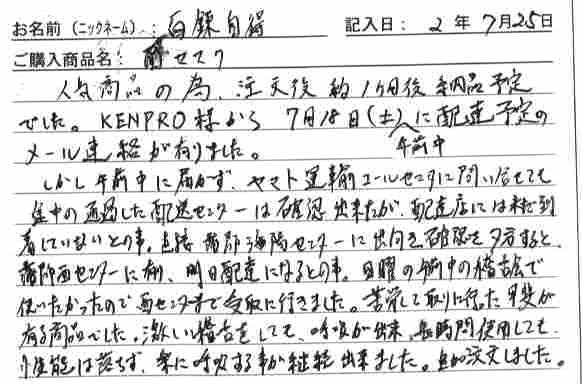 お名前（ニックネーム）：百錬自得 記入日：2年7月25日
ご購入商品名：面マスク
人気商品の為、注文後 約1ヶ月後 納品予定
でした。KENPRO様から 7月18日（土）に配達予定の
午前中
メール連絡が有りました。
しかし午前中に届かず、ヤマト運輸コールセンターに問い合せても
途中の通過した配送センターは確認出来たが、配達店には未到
着していないとの事。直接 蒲郡海陽センターに出向き確認を夕方すると、
蒲郡西センターに有り、明日配達になるとの事。日曜の午前中の稽古会で
使いたかったので西センターまで受取に行きました。苦労して取りに行った甲斐が
有る商品でした。激しい稽古をしても、呼吸が出来、長時間使用しても
性能は落ちず、楽に呼吸する事が継続出来ました。追加注文しました。